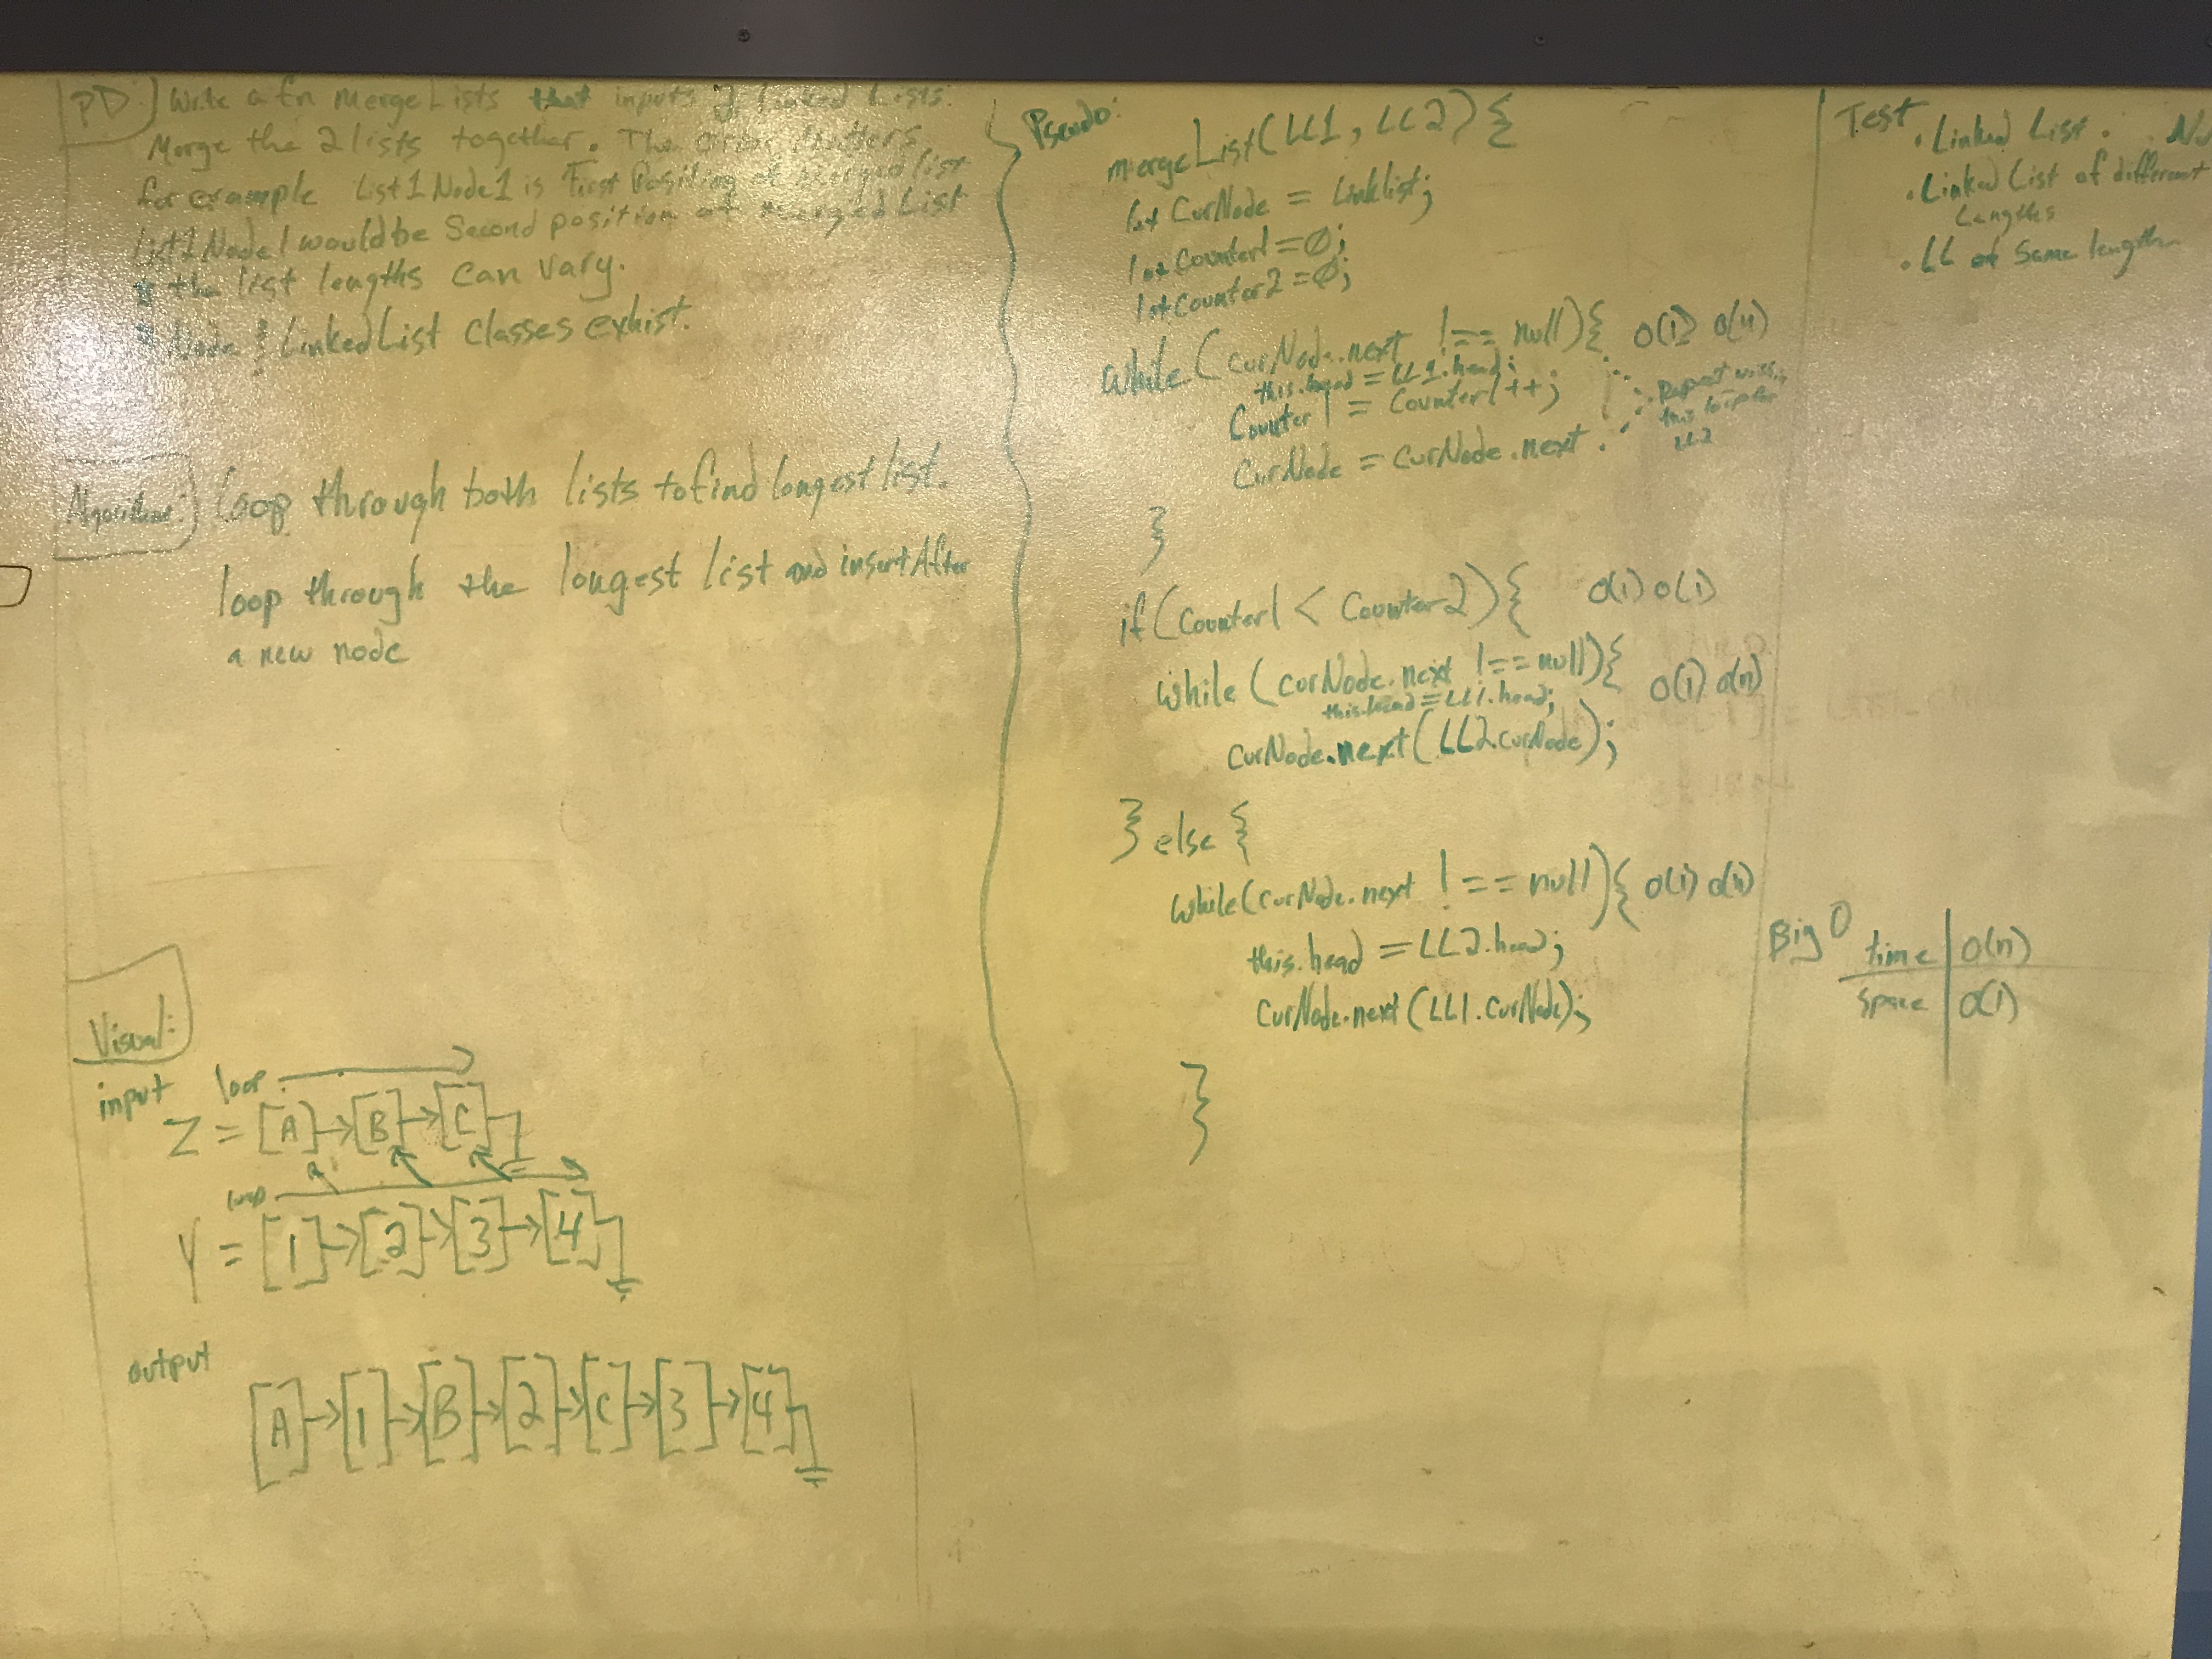 PD:
Write a fn mergeLists that inputs 2 linked Lists.
Merge the 2 lists together. The order Matters
for example List1Node1 is First Position of merged list
List1Node1 would be Second position of merged List
the list lengths can vary.
Node & LinkedList Classes exhist.
Algorithm: loop through both lists to find longest list.
loop through the longest list and insertAfter
a new node
Visual:
input
loop
Z = [A]→[B]→[C]
loop
Y = [1]→[2]→[3]→[4]
output
[A]→[1]→[B]→[2]→[C]→[3]→[4]
Pseudo:
mergeList(LL1, LL2){
let CurNode = Linklist;
let Counter1 = Ø;
let Counter2 = Ø;
while (curNode.next !== null){ O(1) O(n)
this.head = LL1.head;
Counter1 = Counter1++;
CurNode = curNode.next
Repeat
this loop for
LL2
}
if (Counter1 < Counter2){ O(1) O(1)
while (curNode.next !== null){ O(1) O(n)
this.head = LL1.head;
curNode.next(LL2.curNode);
} else {
while(curNode.next !== null){ O(1) O(n)
this.head = LL2.head;
curNode.next(LL1.curNode);
}
Test
• Linked List.
• Linked List of different
Lengths
• LL of Same length
Big O
time | O(n)
space | O(1)